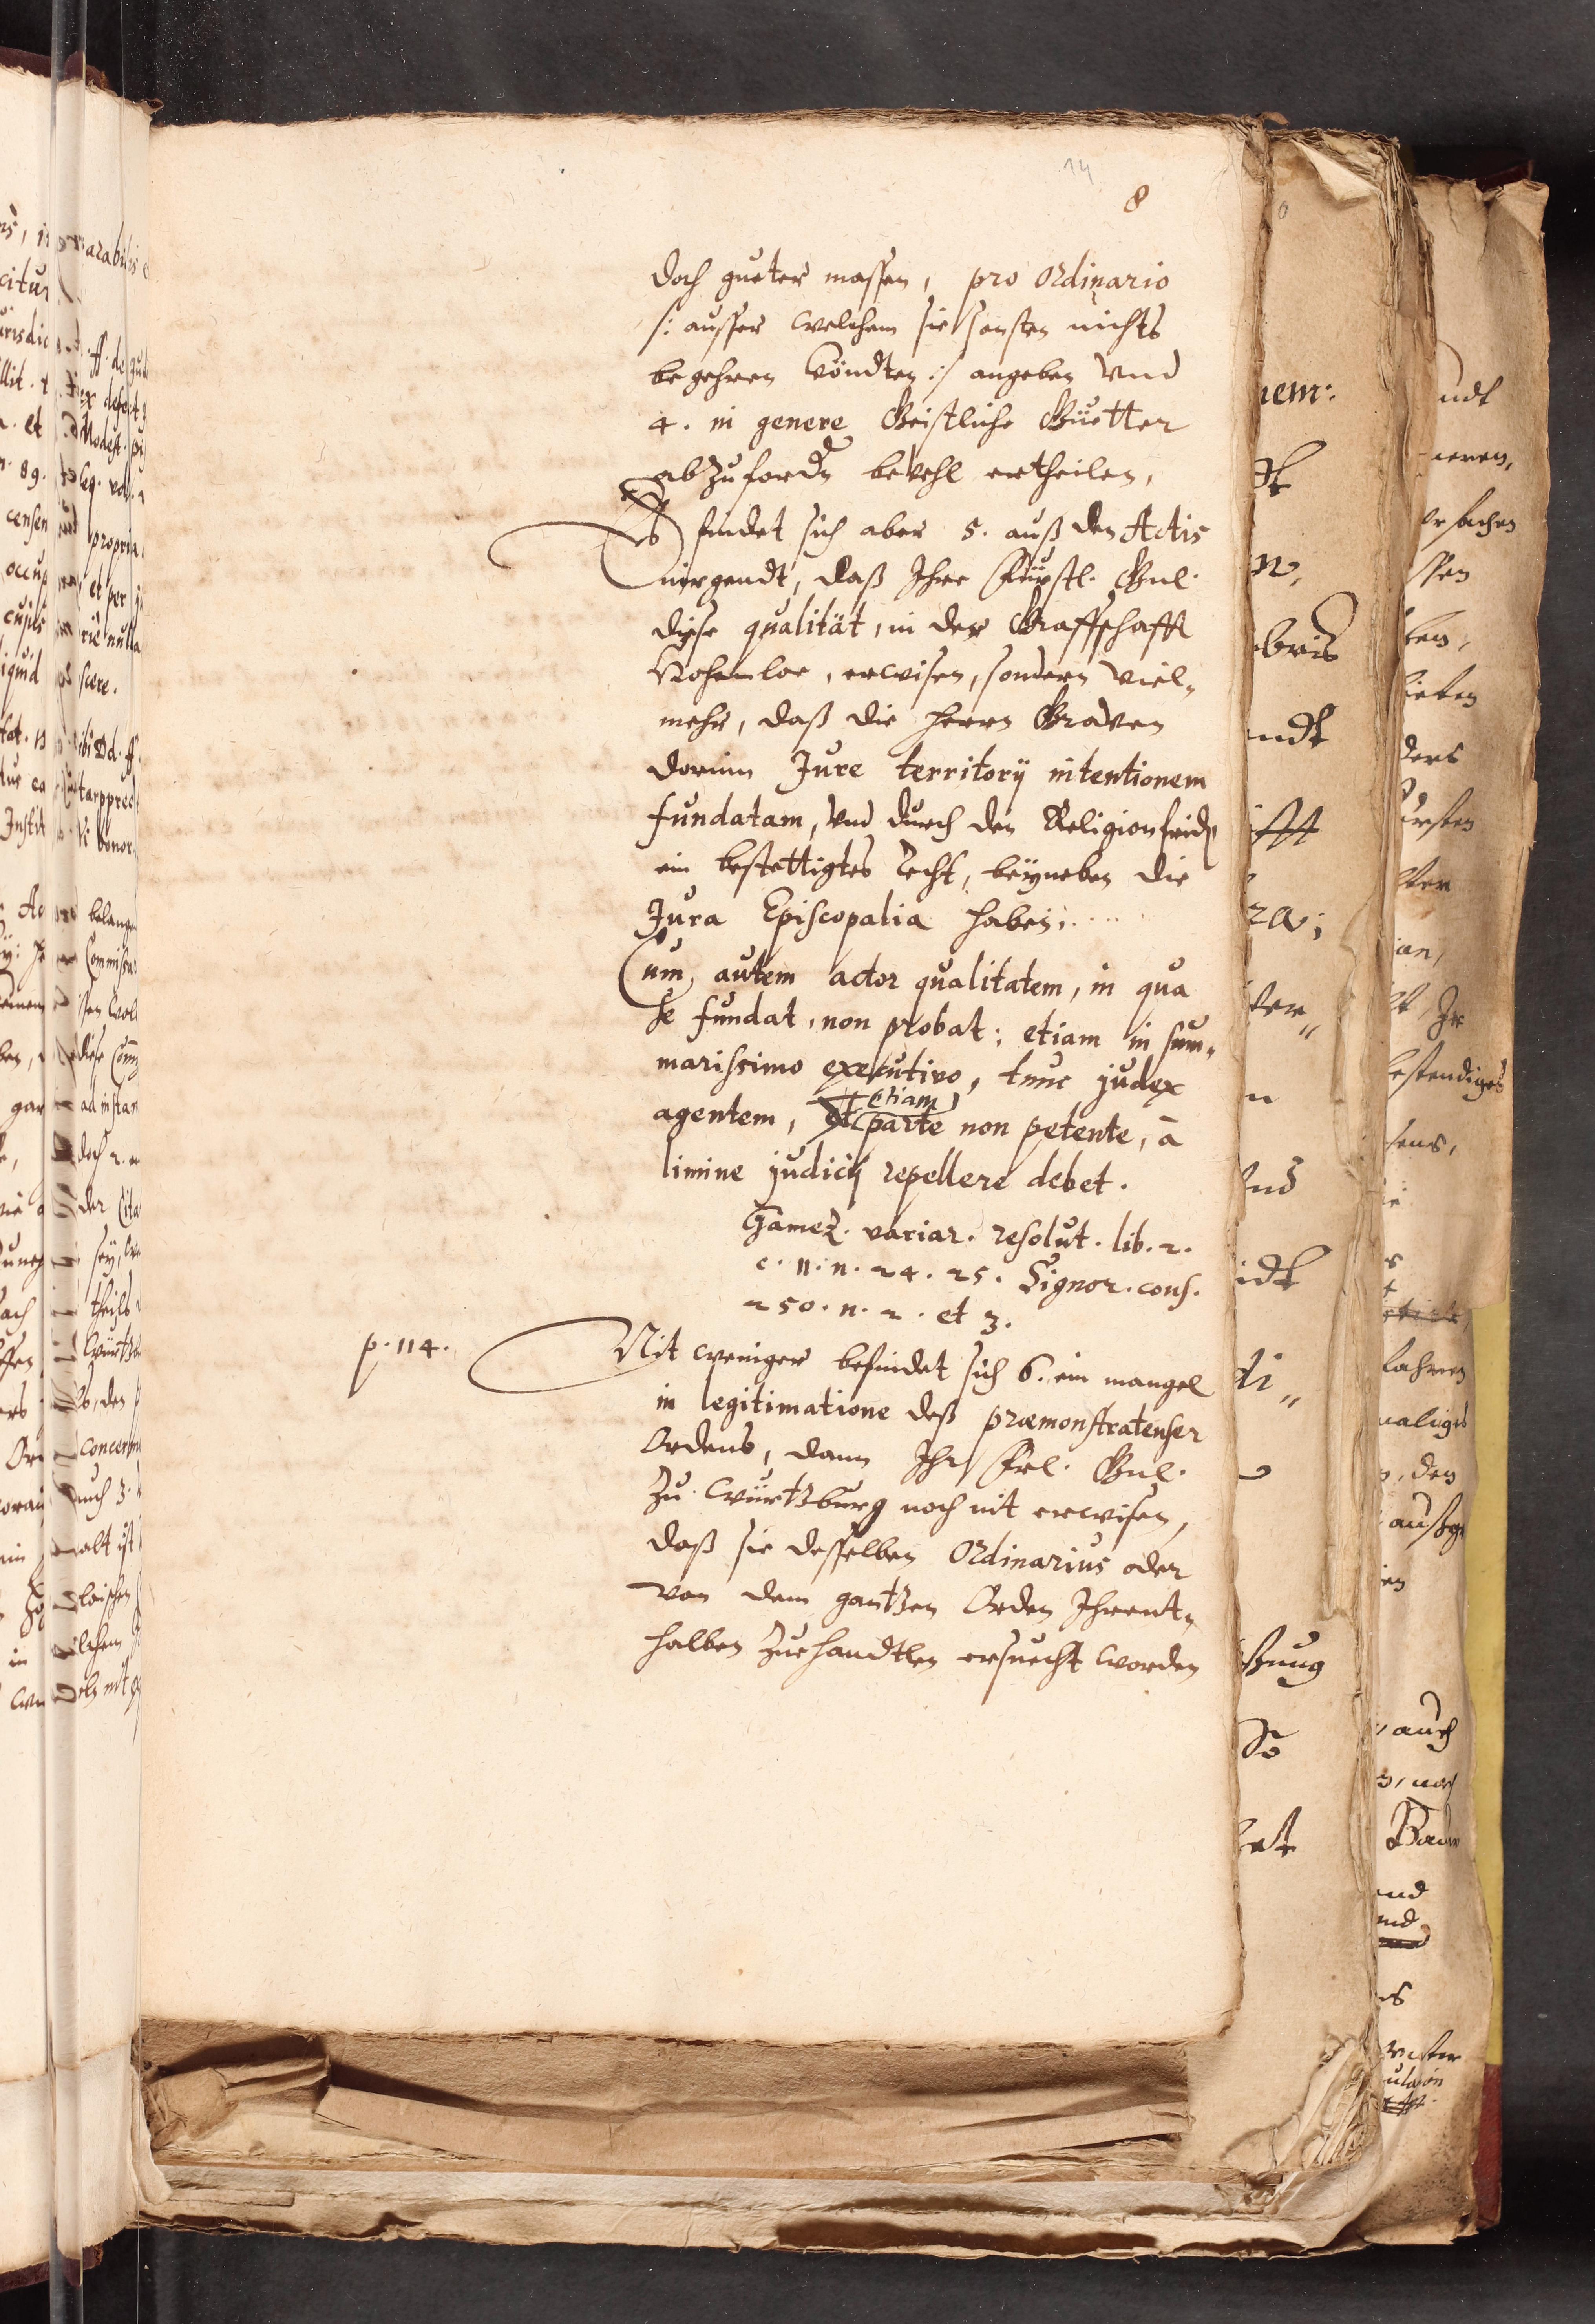 14
8
doch gueter massen, pro ordinario
/: ausser welchem sie sonsten nichts
begehren köndten :/ angeben vnd
4. in genere Geistliche Güetter
abzufordern bevehl ertheilen,
Es findet sich aber 5. auß den Actis
nirgendt, daß Ihre Fürstl. Gnl.
diese qualität, in der Graffschafft
Hohenloe, erwisen, sondern viel-
mehr, daß die Herrn Graven
dorinn Jure territorij intentionem
fundatam, vnd durch den Religionfriden
ein bestettigtes recht, beyneben die
Jura Episcopalia haben.
Cum autem actor qualitatem, in qua
se fundat, non probat; etiam in sum-
marissimo executivo, tunc judex
agentem, etiam parte non petente, à
limine judicij repellere debet.
Gamez. variar. resolut. lib. 2.
c. 11. n. 24. 25. Signor. cons.
250. n. 2. et 3.
p. 114.
Nit weniger befindet sich 6. ein mangel
in legitimatione deß præmonstratenser
Ordens, dann Ihr Frl. Gnl.
zu Würtzburg noch nit erwisen,
daß sie desselben Ordinarius oder
von dem gantzen Orden Ihrent-
halben zuehandtlen ersuecht worden